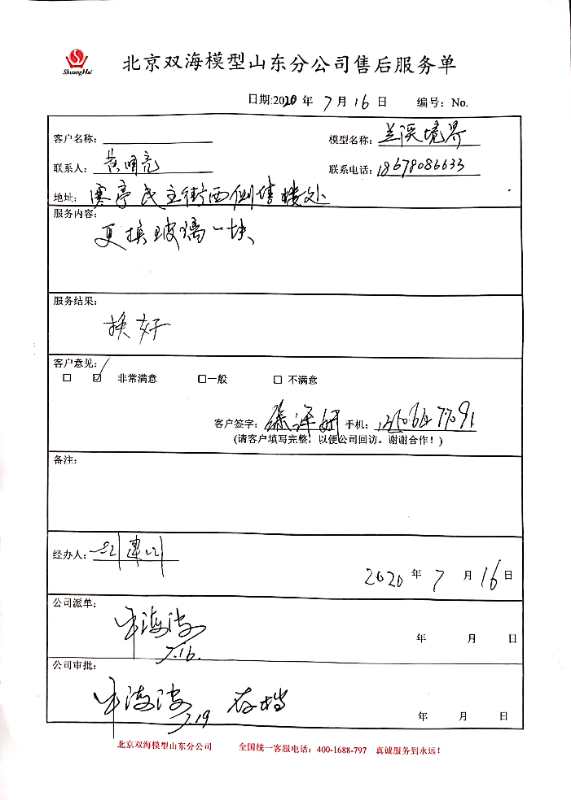 ShuangHai
北京双海模型山东分公司售后服务单
日期:2020 年 7 月 16 日 编号: No.
客户名称: 模型名称: 兰溪境界
联系人: 黄明亮 联系电话: 18678086633
地址: 寒亭民主街西侧售楼处
服务内容:
更换玻璃一块
服务结果:
换好
客户意见:
□ ☑ 非常满意 □一般 □ 不满意
客户签字: 手机:
(请客户填写完整! 以便公司回访。谢谢合作! )
备注:
经办人:
2020 年 7 月 16 日
公司派单:
7.16.
年 月 日
公司审批:
7.19 存档
年 月 日
北京双海模型山东分公司 全国统一客服电话: 400-1688-797 真诚服务到永远!